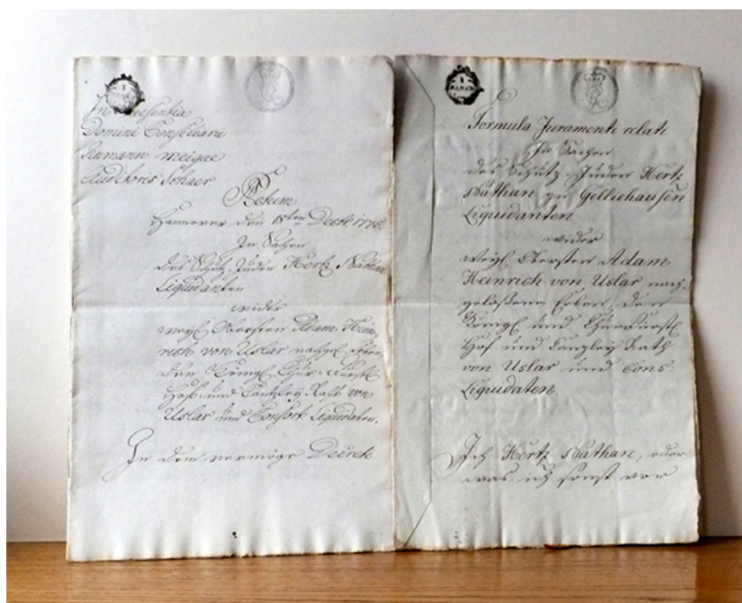 In Praesentia
Domini Consiliarii
Neumann meique
Auditoris Schaer.
Actum
Hannover den 18ten Decbr. 1776.
In Sachen
des Schutz Juden Hertz Nathan
Liquidanten
wider
weyl. Obersten Adam Hein-
rich von Uslar nachgel. Erben
den Königl. Chur-Fürstl.
Hof- und Cantzley Rath von
Uslar und Consort. Liquidaten.
In dem vermöge Decreti
Formula Juramenti relati
In Sachen
des Schutz-Juden Hertz
Nathan zu Gelliehausen
Liquidanten
wider
weyl. Obersten Adam
Heinrich von Uslar nach-
gelaßene Erben, den
Königl. und Churfürstl.
Hof und Canzley Rath
von Uslar und Cons.
Liquidaten.
Ich Hertz Nathan, oder
was ich sonst vor